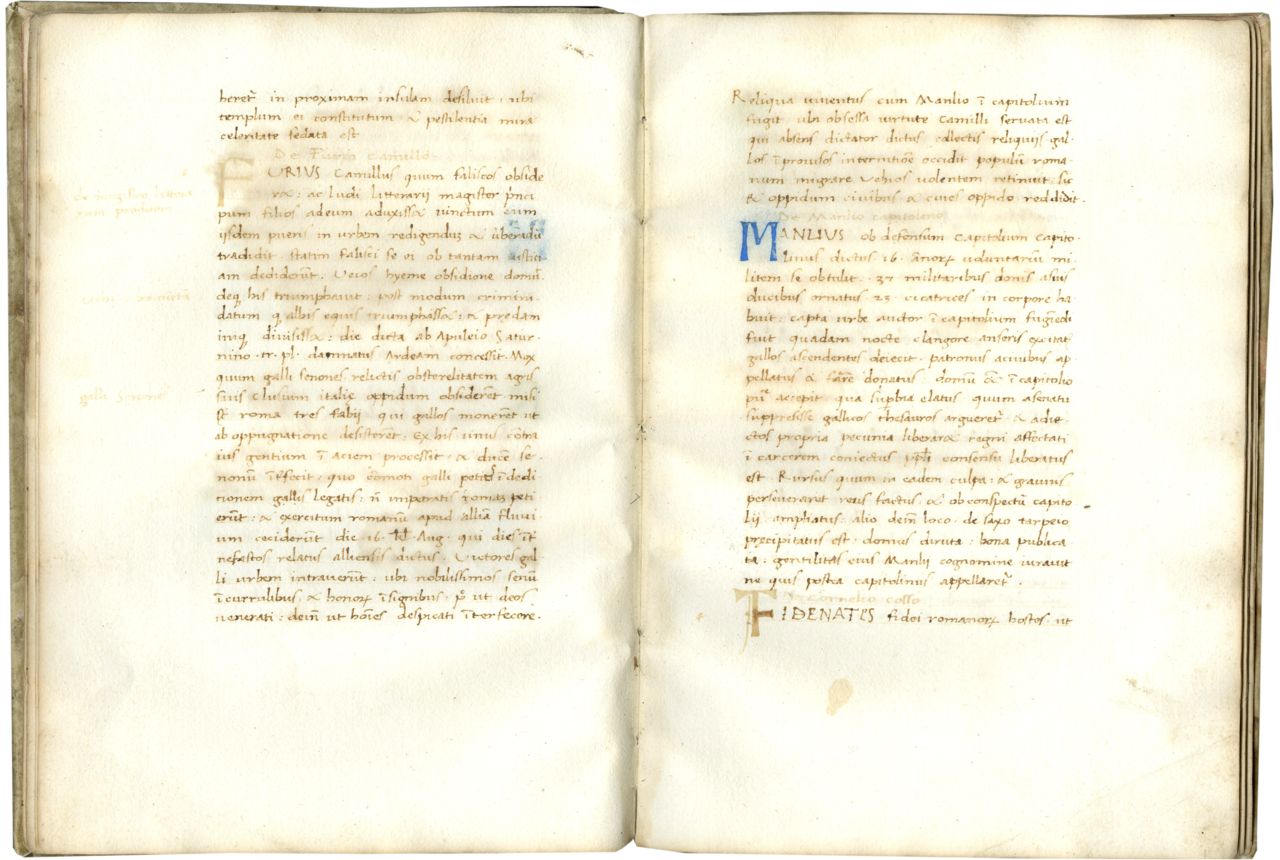 beret᷑ in proximam insulam desiluit · ubi
templum ei constitutum · & pestilentia mira
celeritate sedata est
De Furio Camillo
FURIUS Camillus quum faliscos obside
r& : ac ludi litterarii magister p̄nci
pum filios adeum aduxiss& iunctum eum
iisdem pueris in urbem redigendū &
tradidit · statim falisci se ei ob tantam iustici
am dediderūt · Veios hyeme obsidione domū ·
deq his triumphauit : post modum crimini
datum q albis equis triumphass& : & predam
iniq diuisiss& : die dicta ab Apuleio Satur ·
nino · tr · pl · damnatus Ardeam concessit · Mox
quum galli senones relictis obsterelitatem agris
suis clusium italie oppidum obsiderēt misi
st̄ roma tres fabii qui gallos monerēt ut
ab oppugnatione desisterēt · Ex his unus cōtra
ius gentium ī aciem processit · & ducē se ·
nonū īt̄fecit · quo cōmoti galli petitis ī dedi
tionem gallis legatis : n̄ impetratis romaꝫ peti
erūt · & exercitum romanū apud alliā fluui ·
um cecideriūt die 16 · kl · Aug · qui dies īt̄
nefastos relatus alliensis dictus · Victores gal ·
li urbem intrauerūt · ubi nobilissimos senū
ī currulibus · & honorꝝ īsignibus · p̄ ut deos
uenerati : dein̄ ut hoīes despicati īterfecere ·
galli Senones
Reliqua iuuentus cum Manlio ī capitolium
fugit ubi obsessa uirtute Camilli seruata est
qui absens dictator dictus collectis reliquiis gal ·
los īprouisos internitiōe occidit populū roma ·
num migrare Vehios uolentem retinuit · sic
& oppidum ciuibus & ciues oppido reddidit ·
De Manlio capitolino
MANLIUS ob defensum Capitolium Capito ·
linus dictus 16 · ānorꝝ uoluntariū mi ·
litem se obtulit · 37 militaribus donis a suis
ducibus ornatus 23 · cicatrices in corpore ha
buit : capta urbe auctor ī capitolium fugiēdi
fuit quadam nocte clangore anseris excitat᷒
gallos ascendentes deiecit · patronus a ciuibus ap ·
pellatus & farre donatus : domū &c̄ ī capitolio
pu͞ accepit · qua supbia elatus quum a senatu
suppresisse gallicos thesauros arguer& · & adic ·
ctos propria pecunia liberar& regni affectati
ī carcerem coniectus ppl̄i consensu liberatus
est · Rursus quum in eadem culpa : & grauius
perseuerar& reus factus & ob conspectū capito
lii ampliatus · alio dein̄ loco · de saxo tarpeio
precipitatus est · domus diruta : bona publica
ta : gentilitas eius Manlii cognomine iurauit
ne quis postea capitolinus appellaret᷑ ·
De Cornelio Cosso
FIDENATES fidei romanorꝝ hostes · ut